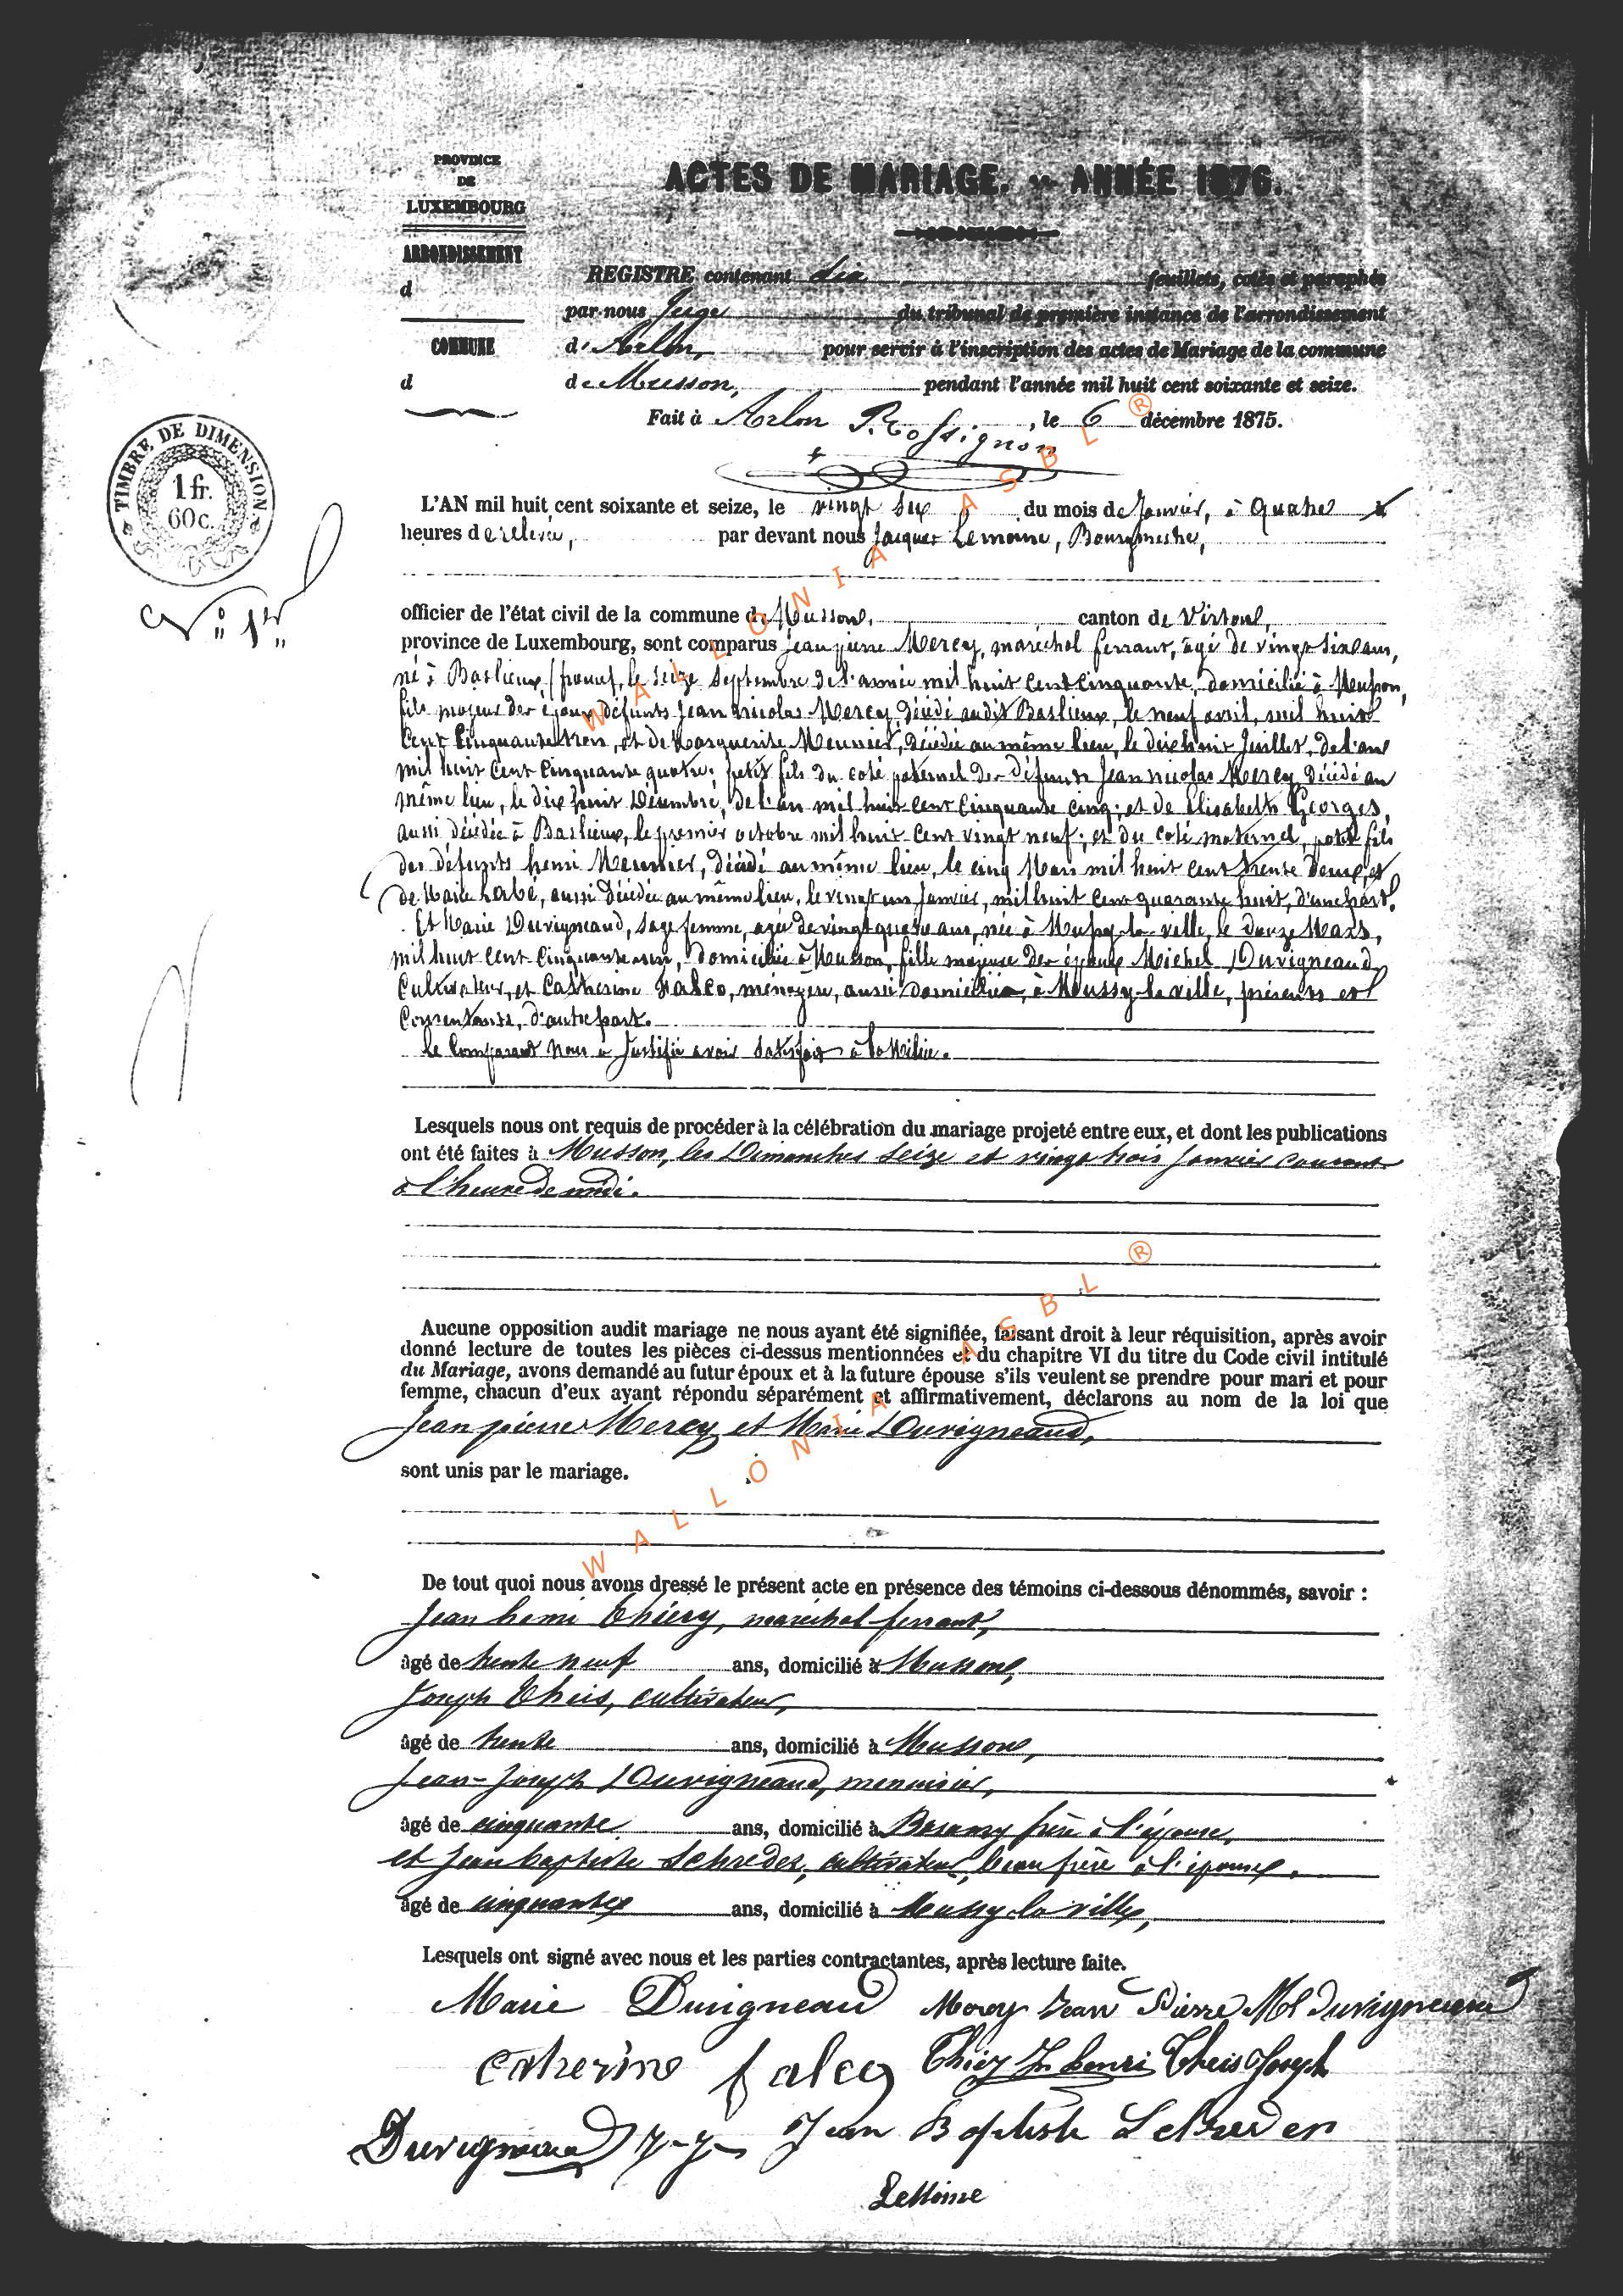 PROVINCE
DE
LUXEMBOURG
ARRONDISSEMENT
d
COMMUNE
d
ACTES DE MARIAGE. — ANNÉE 1876.
REGISTRE contenant dix feuillets, cotés et paraphés
par nous Juge du tribunal de première instance de l'arrondissement
d' Arlon, pour servir à l'inscription des actes de Mariage de la commune
de Musson, pendant l'année mil huit cent soixante et seize.
Fait à Arlon, le 6 décembre 1875.
P. Rossignon
TIMBRE DE DIMENSION
1 fr.
60 c.
N° 1er
L'AN mil huit cent soixante et seize, le vingt six du mois de Janvier, à quatre
heures de relevée, par devant nous Jacques Lemoine, Bourgmestre,
officier de l'état civil de la commune de Musson, canton de Virton,
province de Luxembourg, sont comparus Jean pierre Mercy, maréchal ferrant, âgé de vingt six ans,
né à Baslieux, (france), le seize Septembre de l'année mil huit cent cinquante, domicilié à Musson,
fils majeur des époux défunts Jean nicolas Mercy, décédé audit Baslieux, le neuf avril, mil huit
cent cinquante trois, et de Marguerite Meunier, décédée au même lieu, le dix huit Juillet, de l'an
mil huit cent cinquante quatre; petit fils du coté paternel des défunts Jean nicolas Mercy décédé au
même lieu, le dix huit Décembre, de l'an mil huit cent cinquante cinq; et de Elisabeth Georges,
aussi décédée à Baslieux, le premier octobre mil huit cent vingt neuf; et du coté maternel, petit fils
des défunts henri Meunier, décédé au même lieu, le cinq Mars mil huit cent trente deux, et
de Marie aussi décédée au même lieu, le vingt un Janvier, mil huit cent quarante huit, d'une part.
Et Marie Duvigneaud, Sage femme, agée de vingt quatre ans, née à Mussy-la-ville, le douze Mars,
mil huit cent cinquante un, domiciliée à Musson, fille majeure des époux Michel Duvigneaud,
Cultivateur, et Catherine Falco, ménagère, aussi domiciliés, à Mussy la ville, présents et
Consentants, d'autre part.
Le Comparant nous a Justifié avoir Satisfait à la Milice.
Lesquels nous ont requis de procéder à la célébration du mariage projeté entre eux, et dont les publications
ont été faites à Musson, les Dimanches Seize et vingt trois Janvier courant
à l'heure de midi.
Aucune opposition audit mariage ne nous ayant été signifiée, faisant droit à leur réquisition, après avoir
donné lecture de toutes les pièces ci-dessus mentionnées et du chapitre VI du titre du Code civil intitulé
du Mariage, avons demandé au futur époux et à la future épouse s'ils veulent se prendre pour mari et pour
femme, chacun d'eux ayant répondu séparément et affirmativement, déclarons au nom de la loi que
Jean pierre Mercy et Marie Duvigneaud,
sont unis par le mariage.
De tout quoi nous avons dressé le présent acte en présence des témoins ci-dessous dénommés, savoir :
Jean henri Thiéry, maréchal ferrant,
âgé de trente neuf ans, domicilié à Musson,
Joseph Theis, cultivateur,
âgé de trente ans, domicilié à Musson,
Jean-Joseph Duvigneaud, menuisier,
âgé de cinquante ans, domicilié à frère à l'épouse,
et Jean baptiste Schreder, cultivateur, beau frère à l'épouse,
âgé de cinquante ans, domicilié à Mussy la ville,
Lesquels ont signé avec nous et les parties contractantes, après lecture faite.
Marie Duvigneaud Mercy Jean Pierre Mel Duvigneaud
Catherine falco Thiéry Jn henri Theis Joseph
Duvigneaud J-J- Jean Baptiste Schreder
Lemoine
WALLONIA ASBL ®
WALLONIA ASBL ®